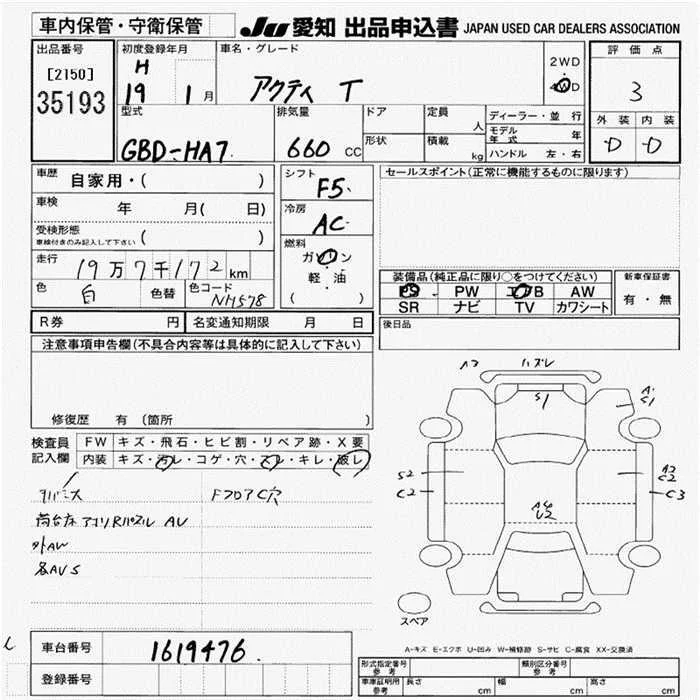 車内保管・守衛保管
JU 愛知 出品申込書 JAPAN USED CAR DEALERS ASSOCIATION
出品番号
[2150]
35193
初度登録年月
H
19 1月
車名・グレード
アクティ T
2WD
4WD
評価点
3
外装 内装
D D
型式
GBD-HA7
排気量
660 CC
ドア
形状
定員
人
積載
kg
ディーラー・並行
モデル年式 年
ハンドル 左・右
車歴 自家用・( )
車検 年 月( 日)
受検形態
車検付きのみ記入して下さい ( )
走行 19万7千172km
色 白 色替 色コード NH578
シフト
F5
冷房
AC
燃料
ガソリン
軽・油
( )
セールスポイント(正常に機能するものに限ります)
装備品(純正品に限り○をつけてください)
PS PW エアB AW
SR ナビ TV カワシート
新車保証書
有・無
R券 円 名変通知期限 月 日
後日品
注意事項申告欄(不具合内容等は具体的に記入して下さい)
修復歴 有 (箇所 )
検査員記入欄
FW キズ・飛石・ヒビ割・リペア跡・X要
内装 キズ・汚レ・コゲ・穴・スレ・キレ・破レ
FフロアC穴
外AW
各AVS
ハズレ
S1
A・
C1
S2
C2
A3
C2
C3
U2
スペア
A-キズ E-エクボ U-凹み W-補修跡 S-サビ C-腐食 XX-交換済
車台番号 1619476
登録番号
形式指定番号
参考
類別区分番号
参考
車庫証明用
参考
長さ cm 幅 cm 高さ cm